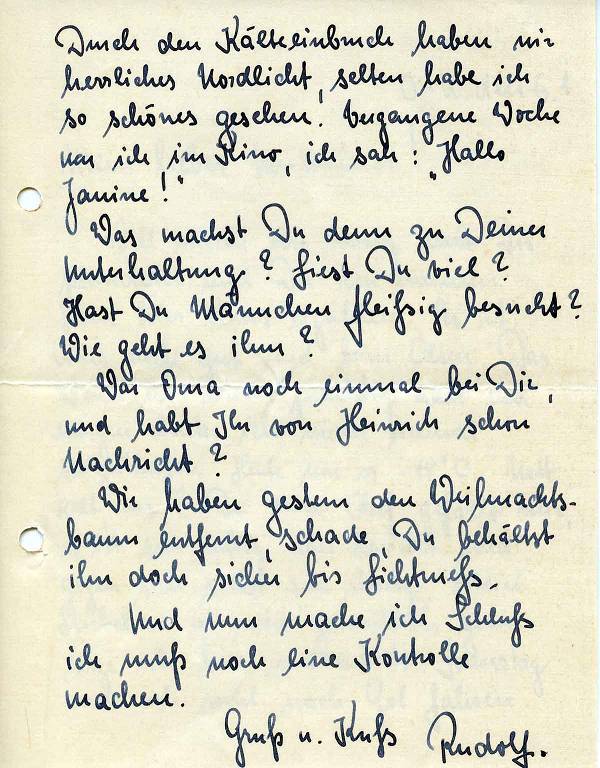 Durch den Kälteeinbruch haben wir
herrliches Nordlicht, selten habe ich
so schönes gesehen. Vergangene Woche
war ich im Kino, ich sah: „Hallo
Janine!"
Was machst Du denn zu Deiner
Unterhaltung? Liest Du viel?
Hast Du Männchen fleißig besucht?
Wie geht es ihm?
War Oma noch einmal bei Dir,
und habt Ihr von Heinrich schon
Nachricht?
Wir haben gestern den Weihnachts-
baum entfernt, schade, Du behältst
ihn doch sicher bis Lichtmeß.
Und nun mache ich Schluß
ich muß noch eine Kontrolle
machen.
Gruß u. Kuß Rudolf.